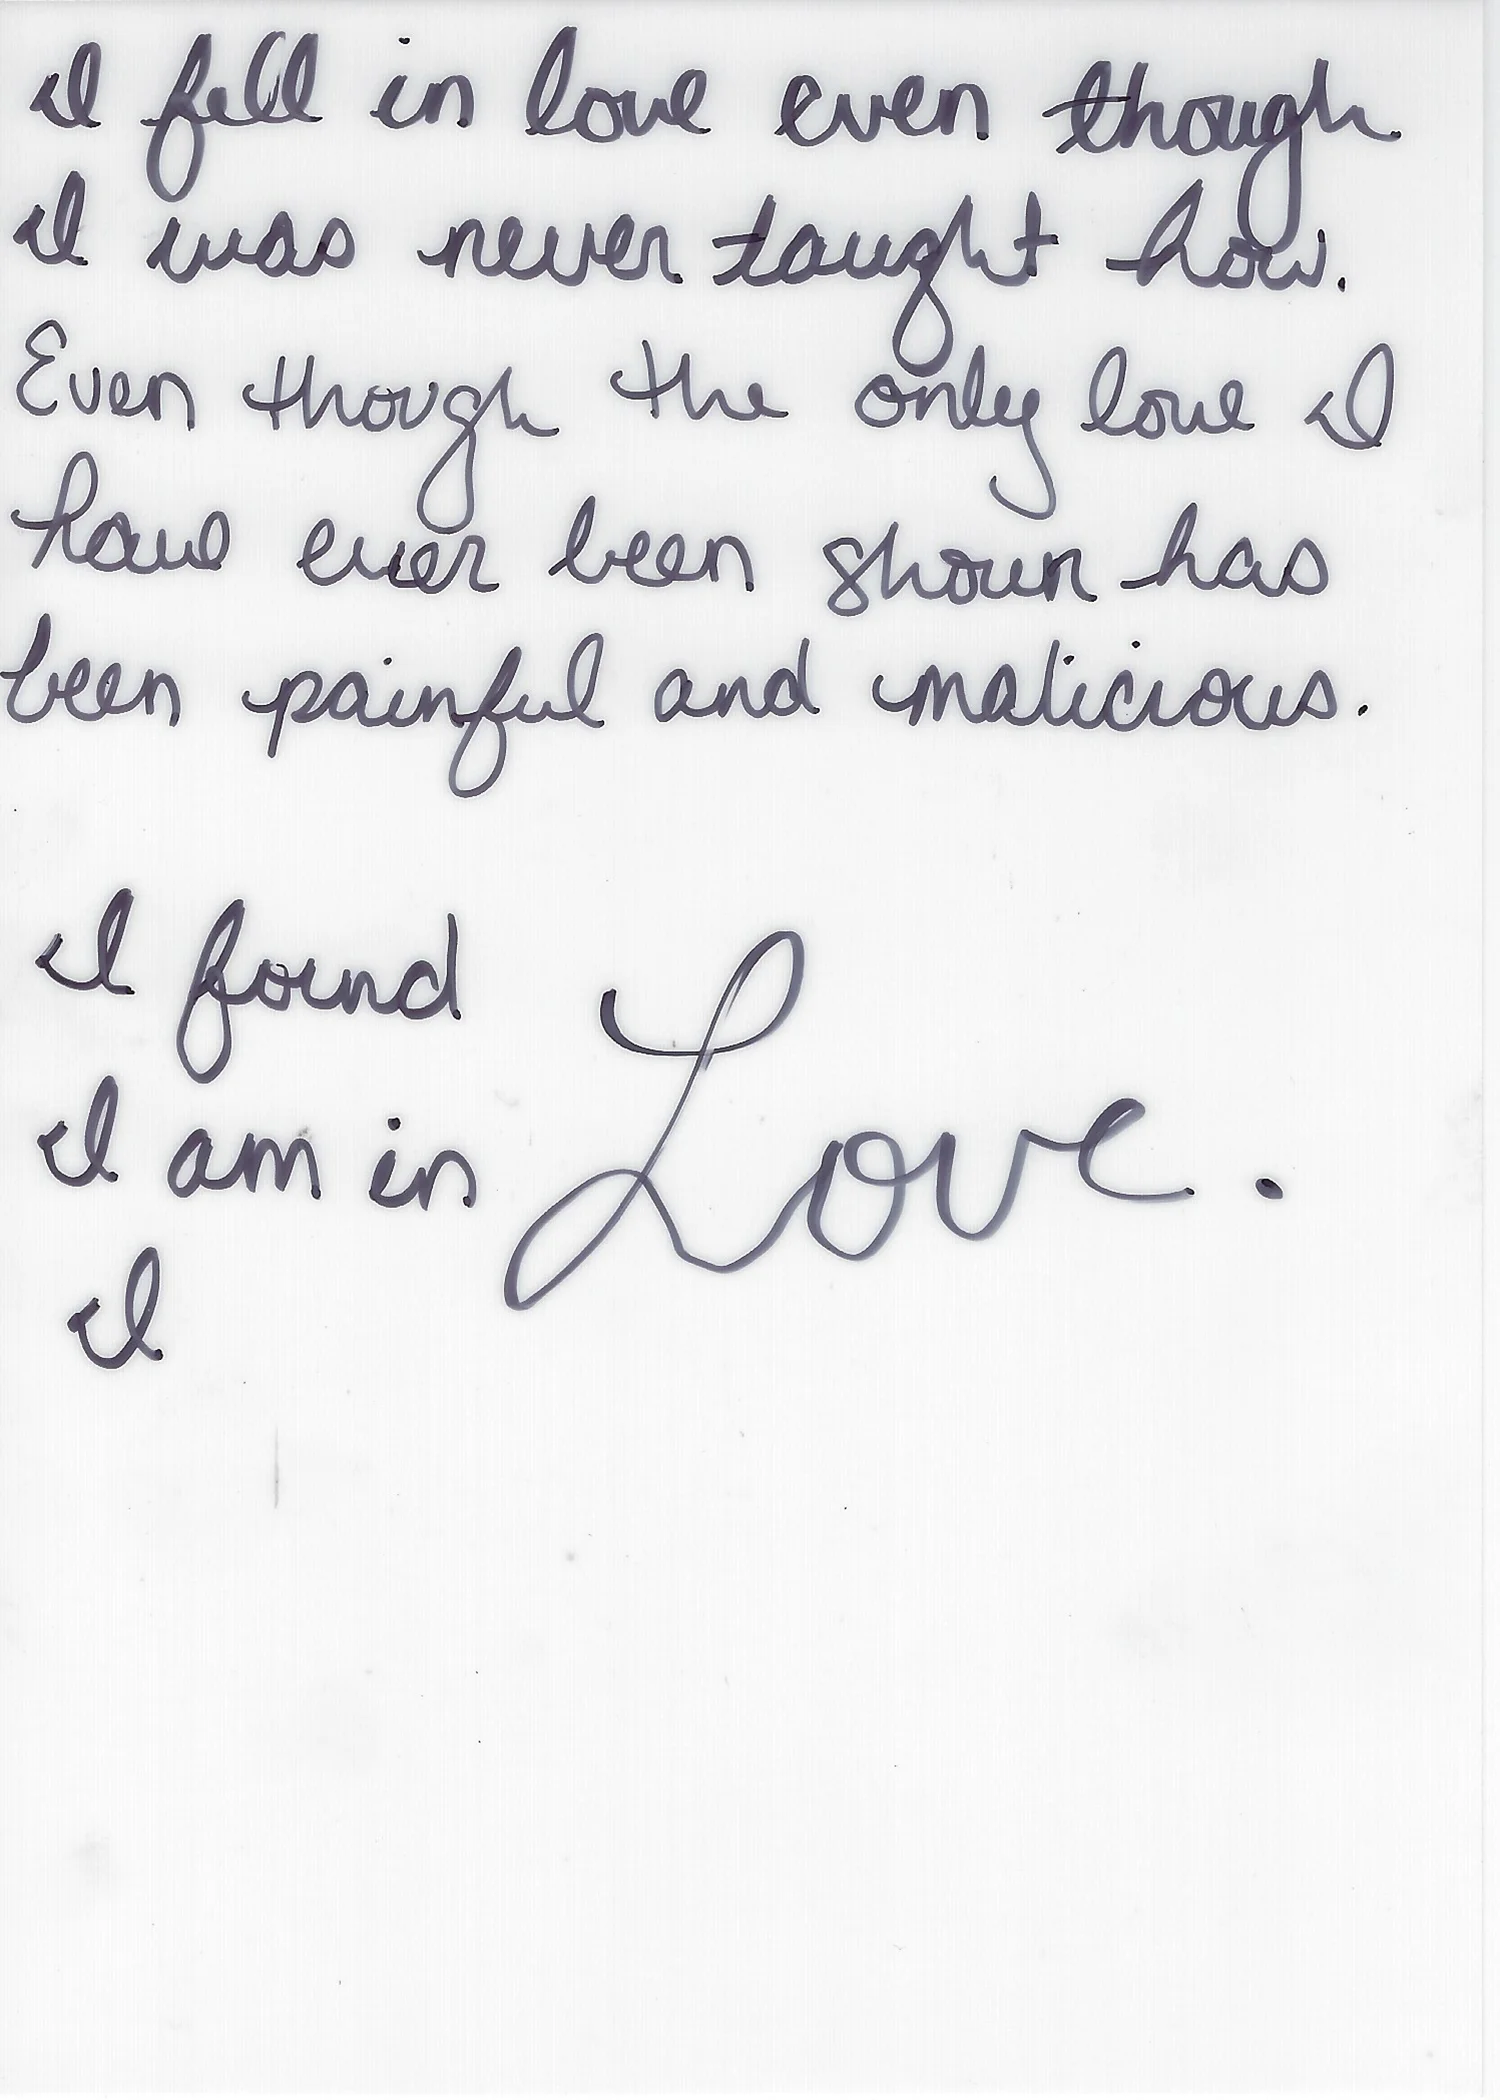 I fell in love even though
I was never taught how.
Even though the only love I
have ever been shown has
been painful and malicious.
I found
I am in
I
Love.